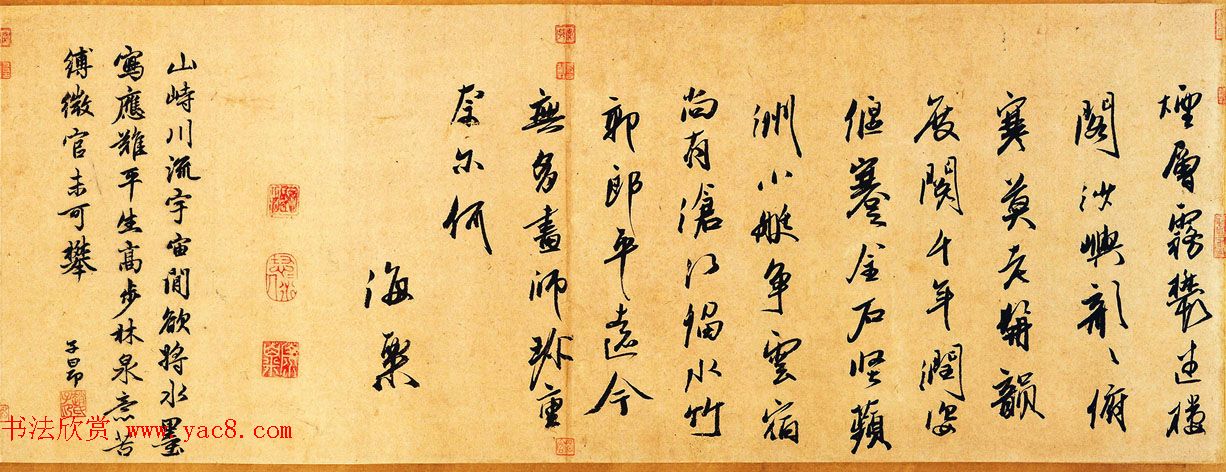 煙層霧迷樓
閣沙嶼〻俯
寒莫老髯韻
展閱千年澗
偃蹇金石堅蘋
洲小艇爭雲宿
尚有滄江水竹
郭郎平遠今
無多畫師珍重
奈尔何
海粟
山峙川流宇宙間欲將水墨
寫應難平生高步林泉意苦
縛微官未可攀
子昂
书法欣赏 www.yac8.com